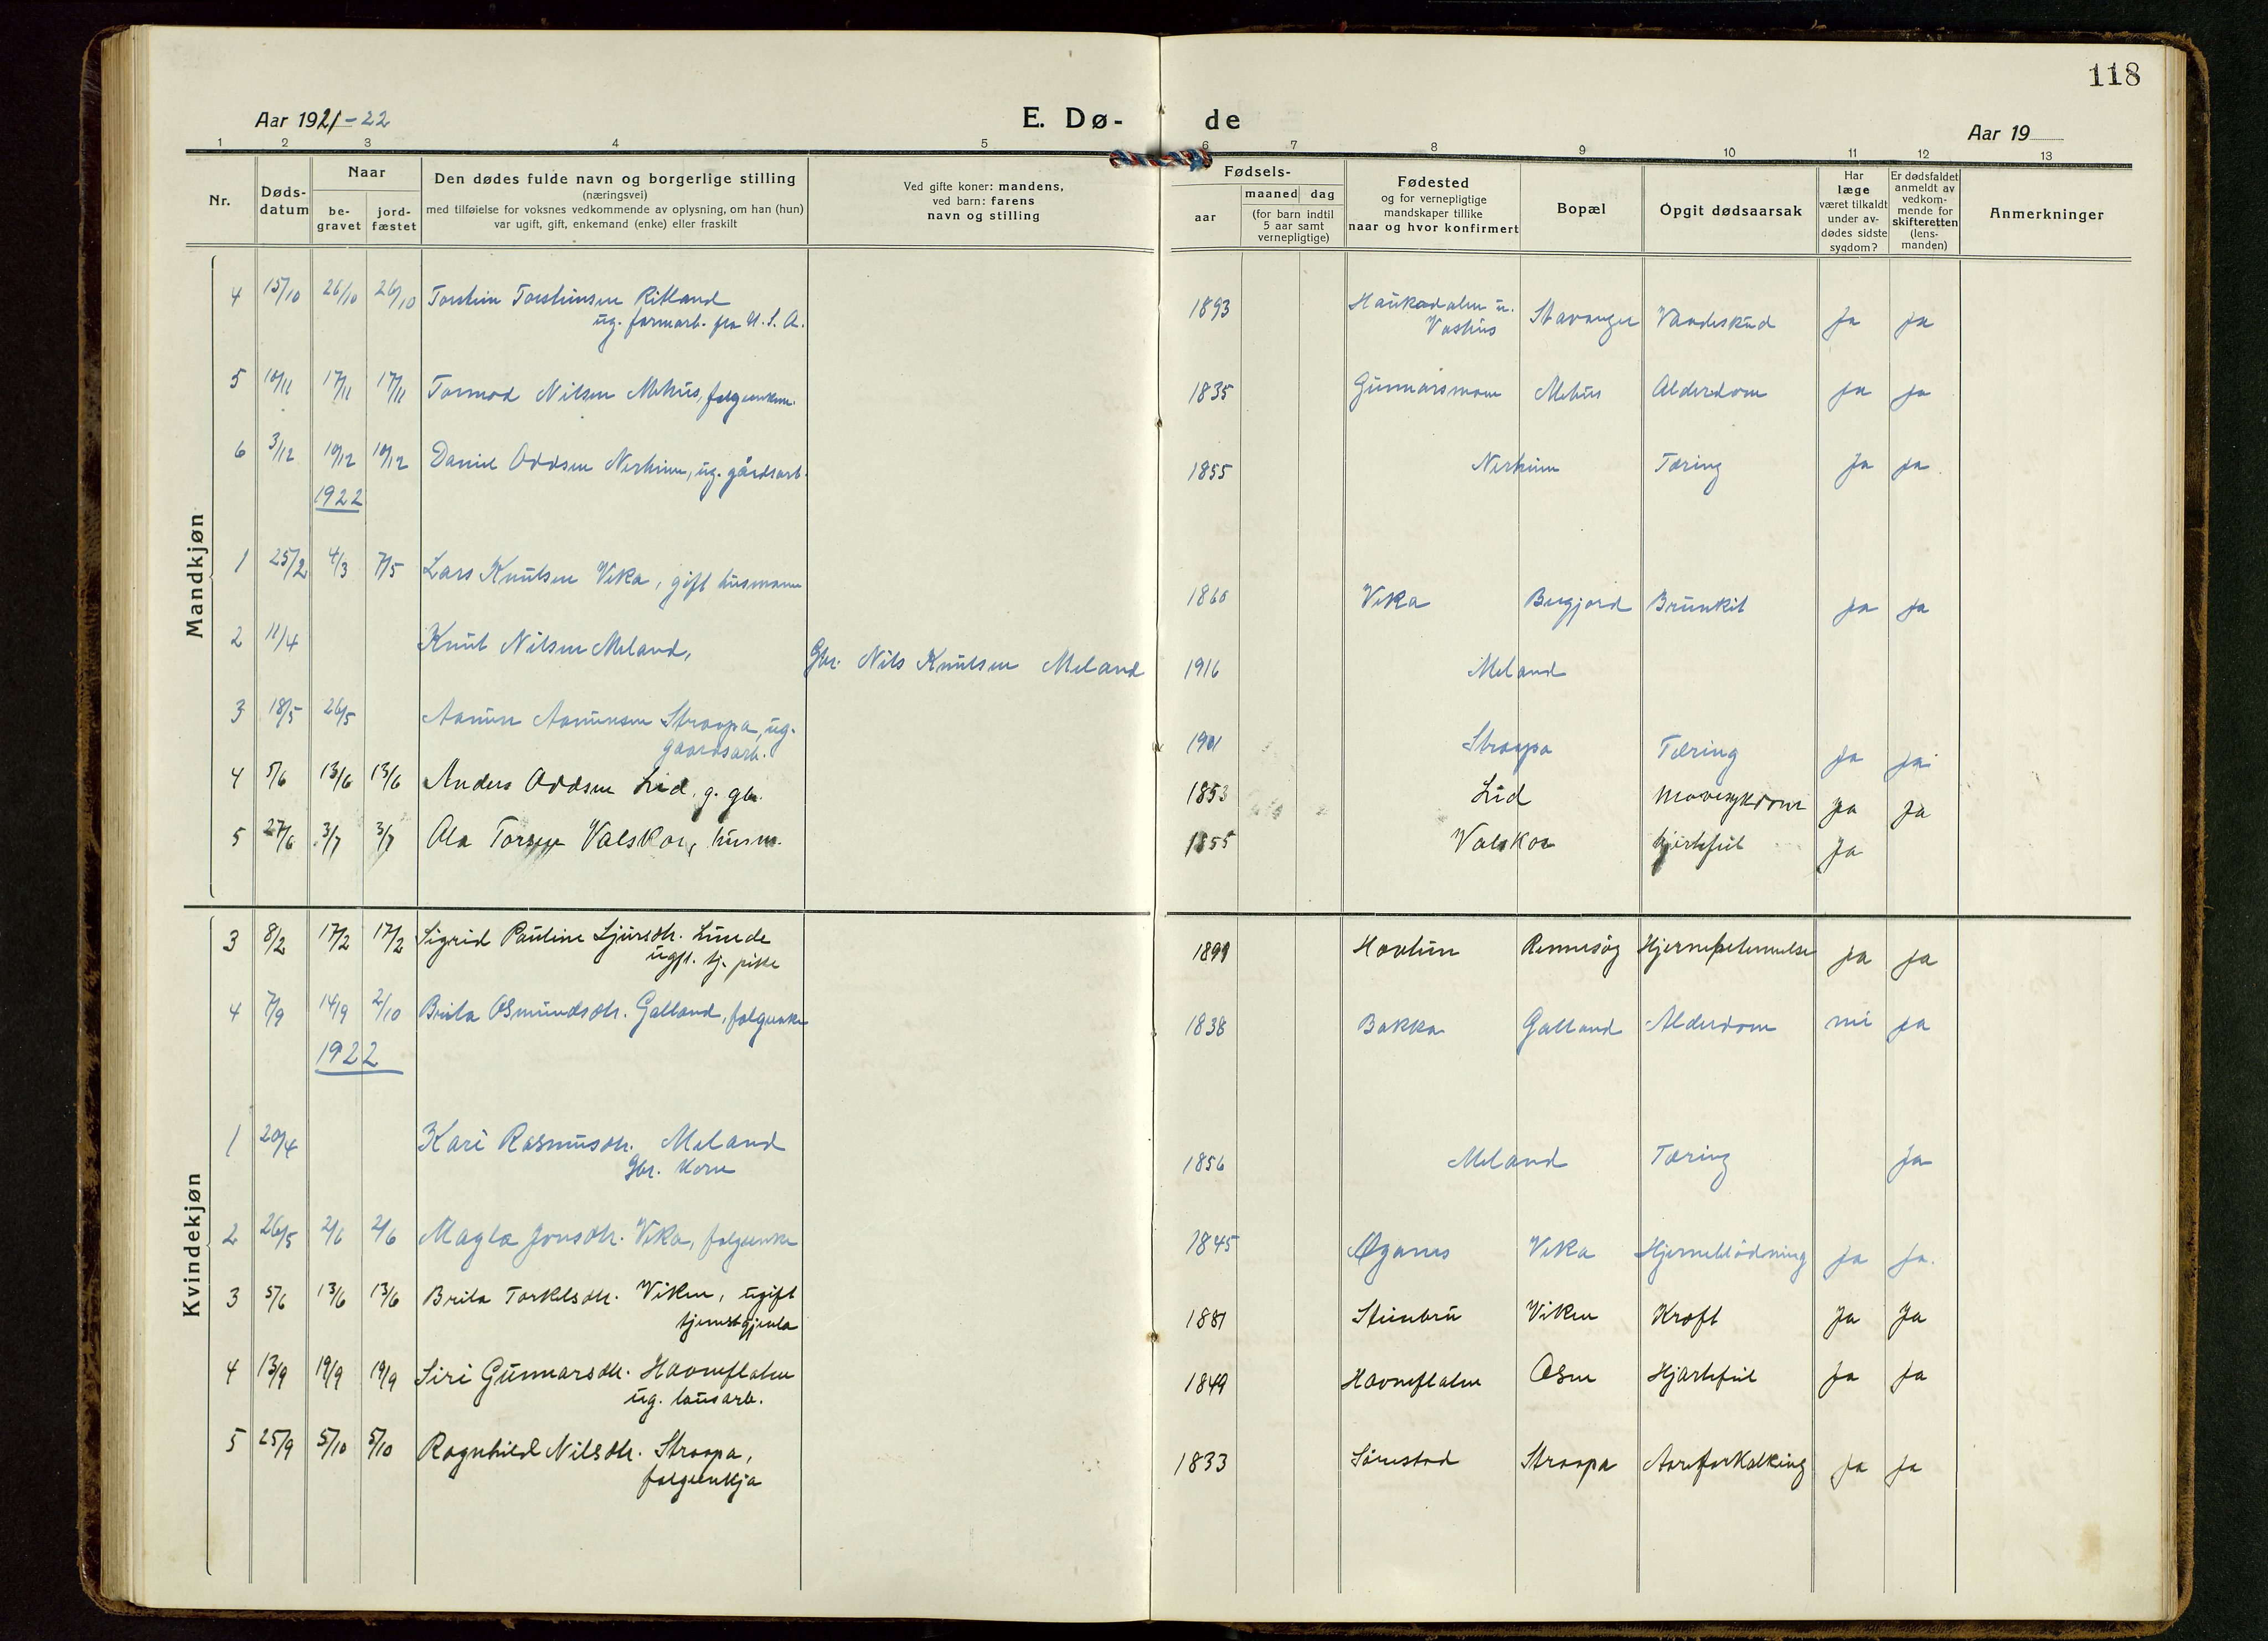 118
Aar 1921-22
E. Dø-
de
Aar 19
1 2 3 4 5 6 7 8 9 10 11 12 13
Nr.
Døds-
datum
Naar
be-
gravet
jord-
fæstet
Den dødes fulde navn og borgerlige stilling
(næringsvei)
med tilføielse for voksnes vedkommende av oplysning, om han (hun)
var ugift, gift, enkemand (enke) eller fraskilt
Ved gifte koner: mandens,
ved barn: farens
navn og stilling
Fødsels-
aar
maaned dag
(for barn indtil
5 aar samt
vernepligtige)
Fødested
og for vernepligtige
mandskaper tillike
naar og hvor konfirmert
Bopæl
Opgit dødsaarsak
Har
læge
været tilkaldt
under av-
dødes sidste
sygdom?
Er dødsfaldet
anmeldt av
vedkom-
mende for
skifteretten
(lens-
manden)
Anmerkninger
Mandkjøn
4 15/10 26/10 26/10 Torstein Torsteinsen Ritland 1893 Haukadalen u. Stavanger Vaadeskud Ja ja
ug. farmarb. fra U.S.A. Vashus
5 10/11 17/11 17/11 Tormod Nilsen Mehus, folgeenkem. 1835 Gunnarsmoen Mehus Alderdom ja ja
6 3/12 10/12 10/12 Daniel Oddsen Nerheim, ug. gårdsarb. 1855 Nerheim Tæring Ja ja
1922
1 25/2 4/3 7/5 Lars Knutsen Veka, gift husmann 1860 Veka Bergjord Brunkit ja ja
2 11/4 Knut Nilsen Meland, Gbr. Nils Knutsen Meland 1916 Meland
3 18/5 26/5 Aamun Aamunsen Straapa, ug. 1901 Straapa Tæring ja ja
gaardsarb.
4 5/6 13/6 13/6 Anders Oddsen Lid, g. gbr. 1853 Lid Mavesykdom ja ja
5 27/6 3/7 3/7 Ola Torsen Valskar, husm. 1855 Valskar hjertefeil Ja
Kvindekjøn
3 8/2 17/2 17/2 Sigrid Pauline Sjursdtr. Lunde 1899 Havtun Rennesøy Hjernebetennelse ja ja
ugft. tj. pike
4 7/9 14/9 2/10 Brita Osmundsdtr. Galland, folgeenke 1838 Bakka Galland Alderdom nei ja
1922
1 20/4 Kari Rasmusdtr. Meland 1856 Meland Tæring Ja
Gbr. Kone
2 26/5 2/6 2/6 Magla Jonsdtr. Veka, folgeenke 1845 Øganes Veka Hjerneblödning ja ja.
3 5/6 13/6 13/6 Brita Torkelsdtr. Viken, ugift 1881 Steinbru Viken Kræft Ja Ja
tjenestgjenta
4 13/9 19/9 19/9 Siri Gunnarsdtr. Havneflaten 1849 Havneflaten Osen Hjartefeil Ja Ja
ug. lausarb.
5 25/9 5/10 5/10 Ragnhild Nilsdtr. Straapa, 1833 Sörestad Straapa Aareforkalking ja ja
folgeenkja